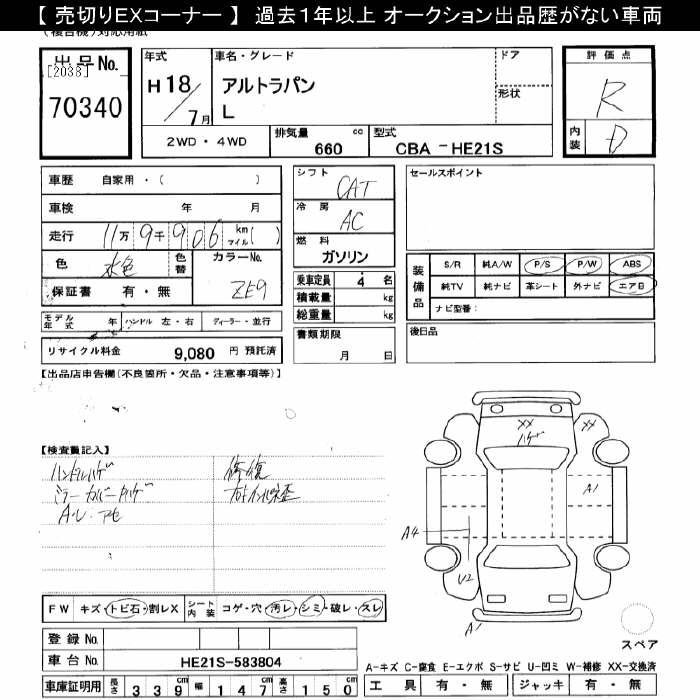 【 売切りEXコーナー 】 過去１年以上 オークション出品歴がない車両
(複合機)対応用紙
出品No.
[2038]
70340
年式
H18/7月
車名・グレード
アルトラパン
L
ドア
形状
評価点
R
内装 D
2WD ・ 4WD
排気量 cc
660
型式
CBA －HE21S
車歴 自家用 ・ ( )
車検 年 月
走行 11万9千906 km マイル( )
色 水色
色替
カラーNo.
ZE9
保証書 有 ・ 無
モデル年式 年 ハンドル 左 ・ 右 ディーラー ・ 並行
リサイクル料金 9,080 円 預託済
シフト CAT
冷房 AC
燃料
ガソリン
乗車定員 4 名
積載量 kg
総重量 kg
書類期限
月 日
セールスポイント
装備品
S/R 純A/W P/S P/W ABS
純TV 純ナビ 革シート 外ナビ エアB
ナビ型番:
後日品
【出品店申告欄(不良箇所・欠品・注意事項等)】
【検査員記入】
ハンドルハゲ
ミラーカバーハゲ
A・L・アセ
修復
XX
ハゲ
XX
A1
A4
U2
A1
FW キズ・トビ石・割レX
シート内装 コゲ・穴・汚レ・シミ・破レ・スレ
登録 No.
車台 No. HE21S-583804
車庫証明用 長さ 339cm 幅 147cm 高さ 150cm
スペア
A-キズ C-腐食 E-エクボ S-サビ U-凹ミ W-補修 XX-交換済
工具 有 ・ 無 ジャッキ 有 ・ 無